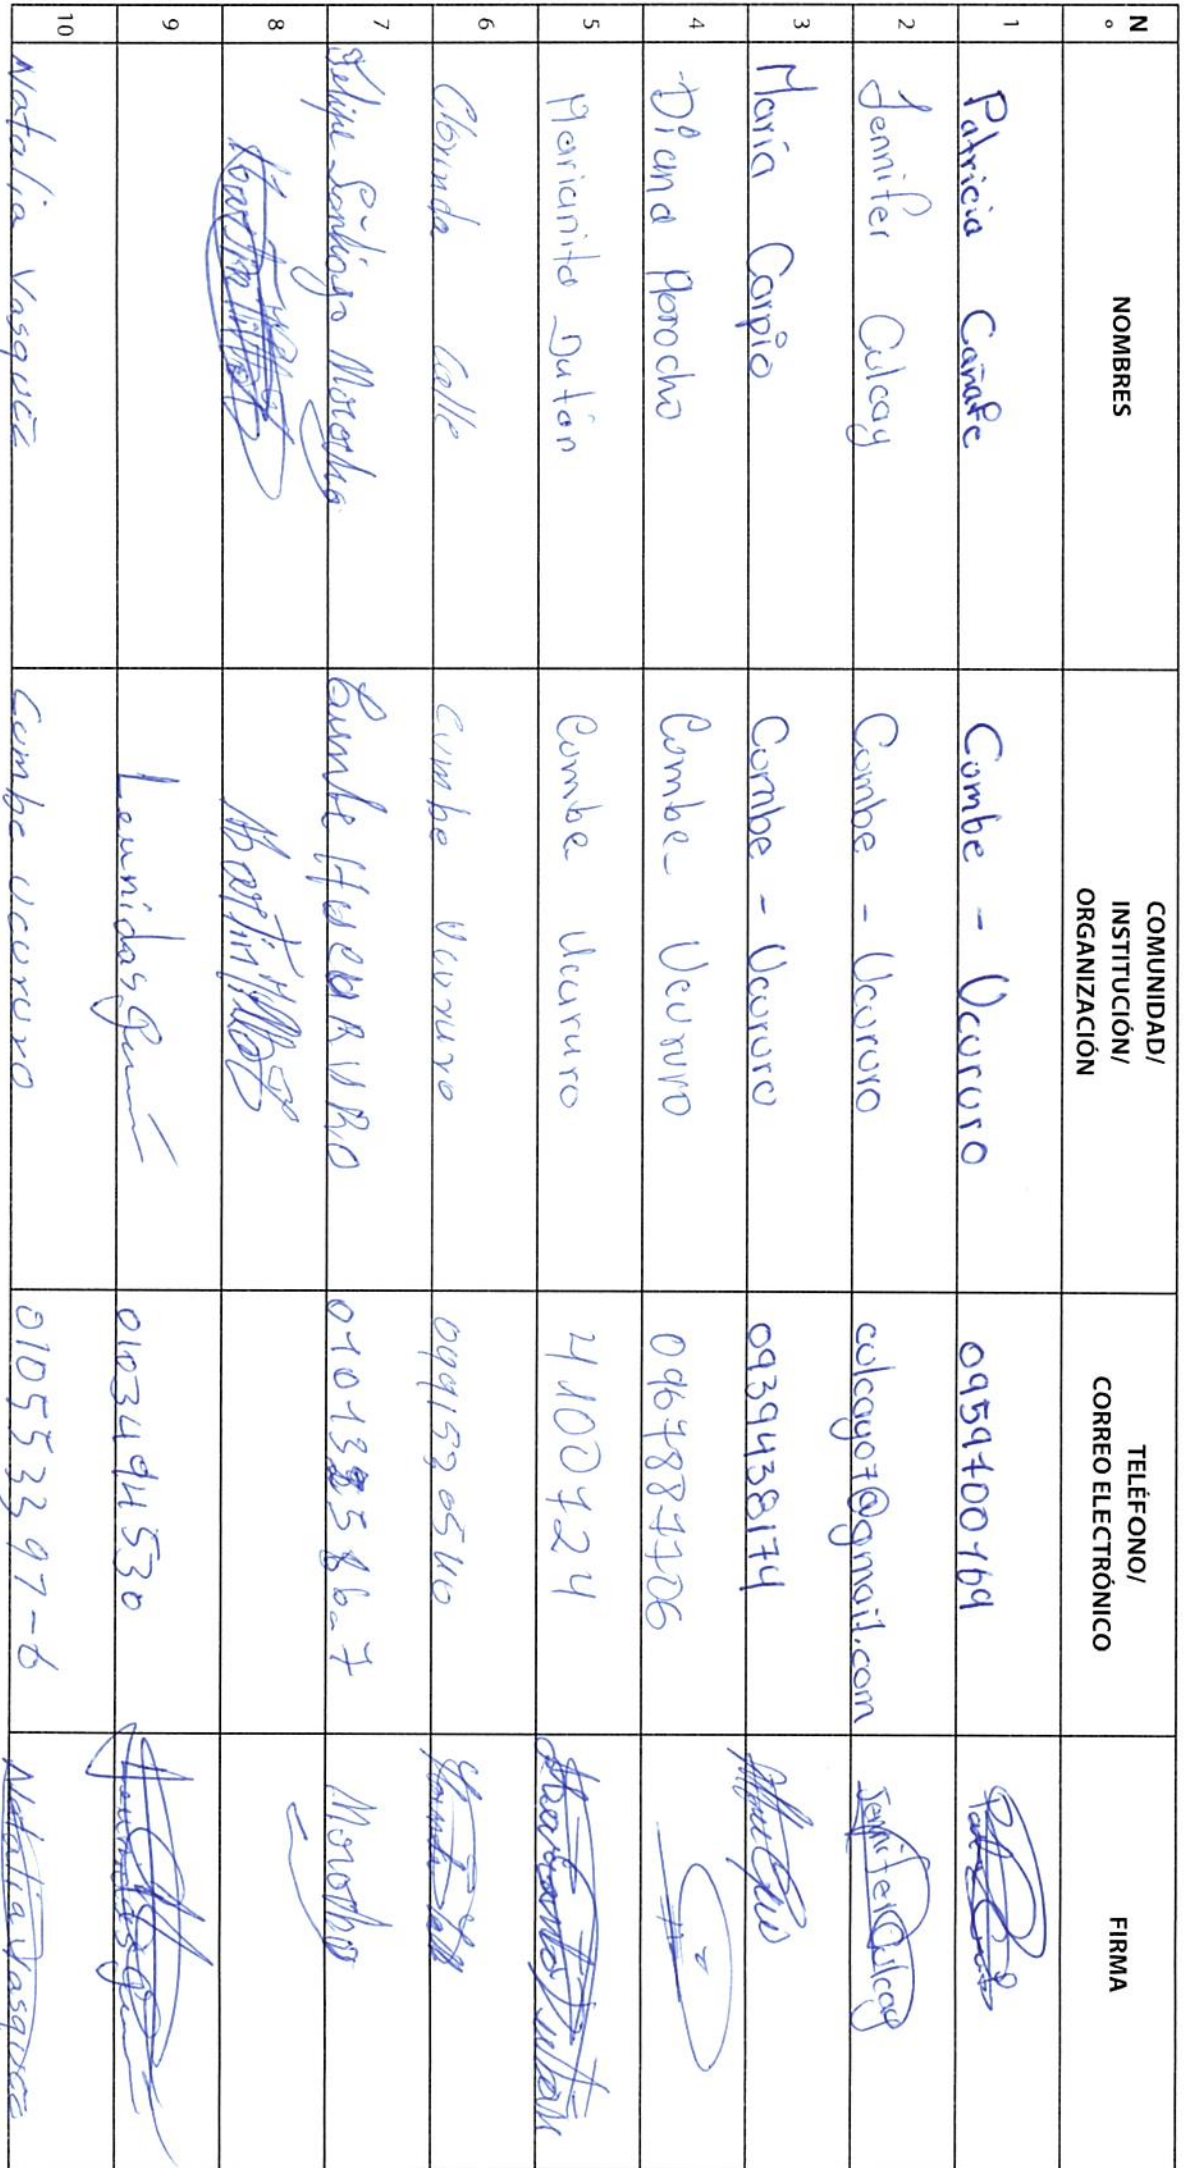 N° NOMBRES COMUNIDAD/ INSTITUCIÓN/ ORGANIZACIÓN TELÉFONO/ CORREO ELECTRÓNICO FIRMA
1 Patricia Cañafe Cumbe - Ucururo 0959700769
2 Jennifer Culcay Cumbe - Ucururo culcay07@gmail.com Jennifer Culcay
3 María Carpio Cumbe - Ucururo 0939438174
4 Diana Morocho Cumbe - Ucururo 0967887706
5 Marianita Dután Cumbe Ucururo 4100724
6 Clorinda Calle Cumbe Ucururo 0991520540
7 Felipe Santiago Morocho Cumbe Morocho
8
9 Leonidas 0103494530
10 Natalia Vasquez Cumbe Ucururo 010553397-6 Natalia Vasquez